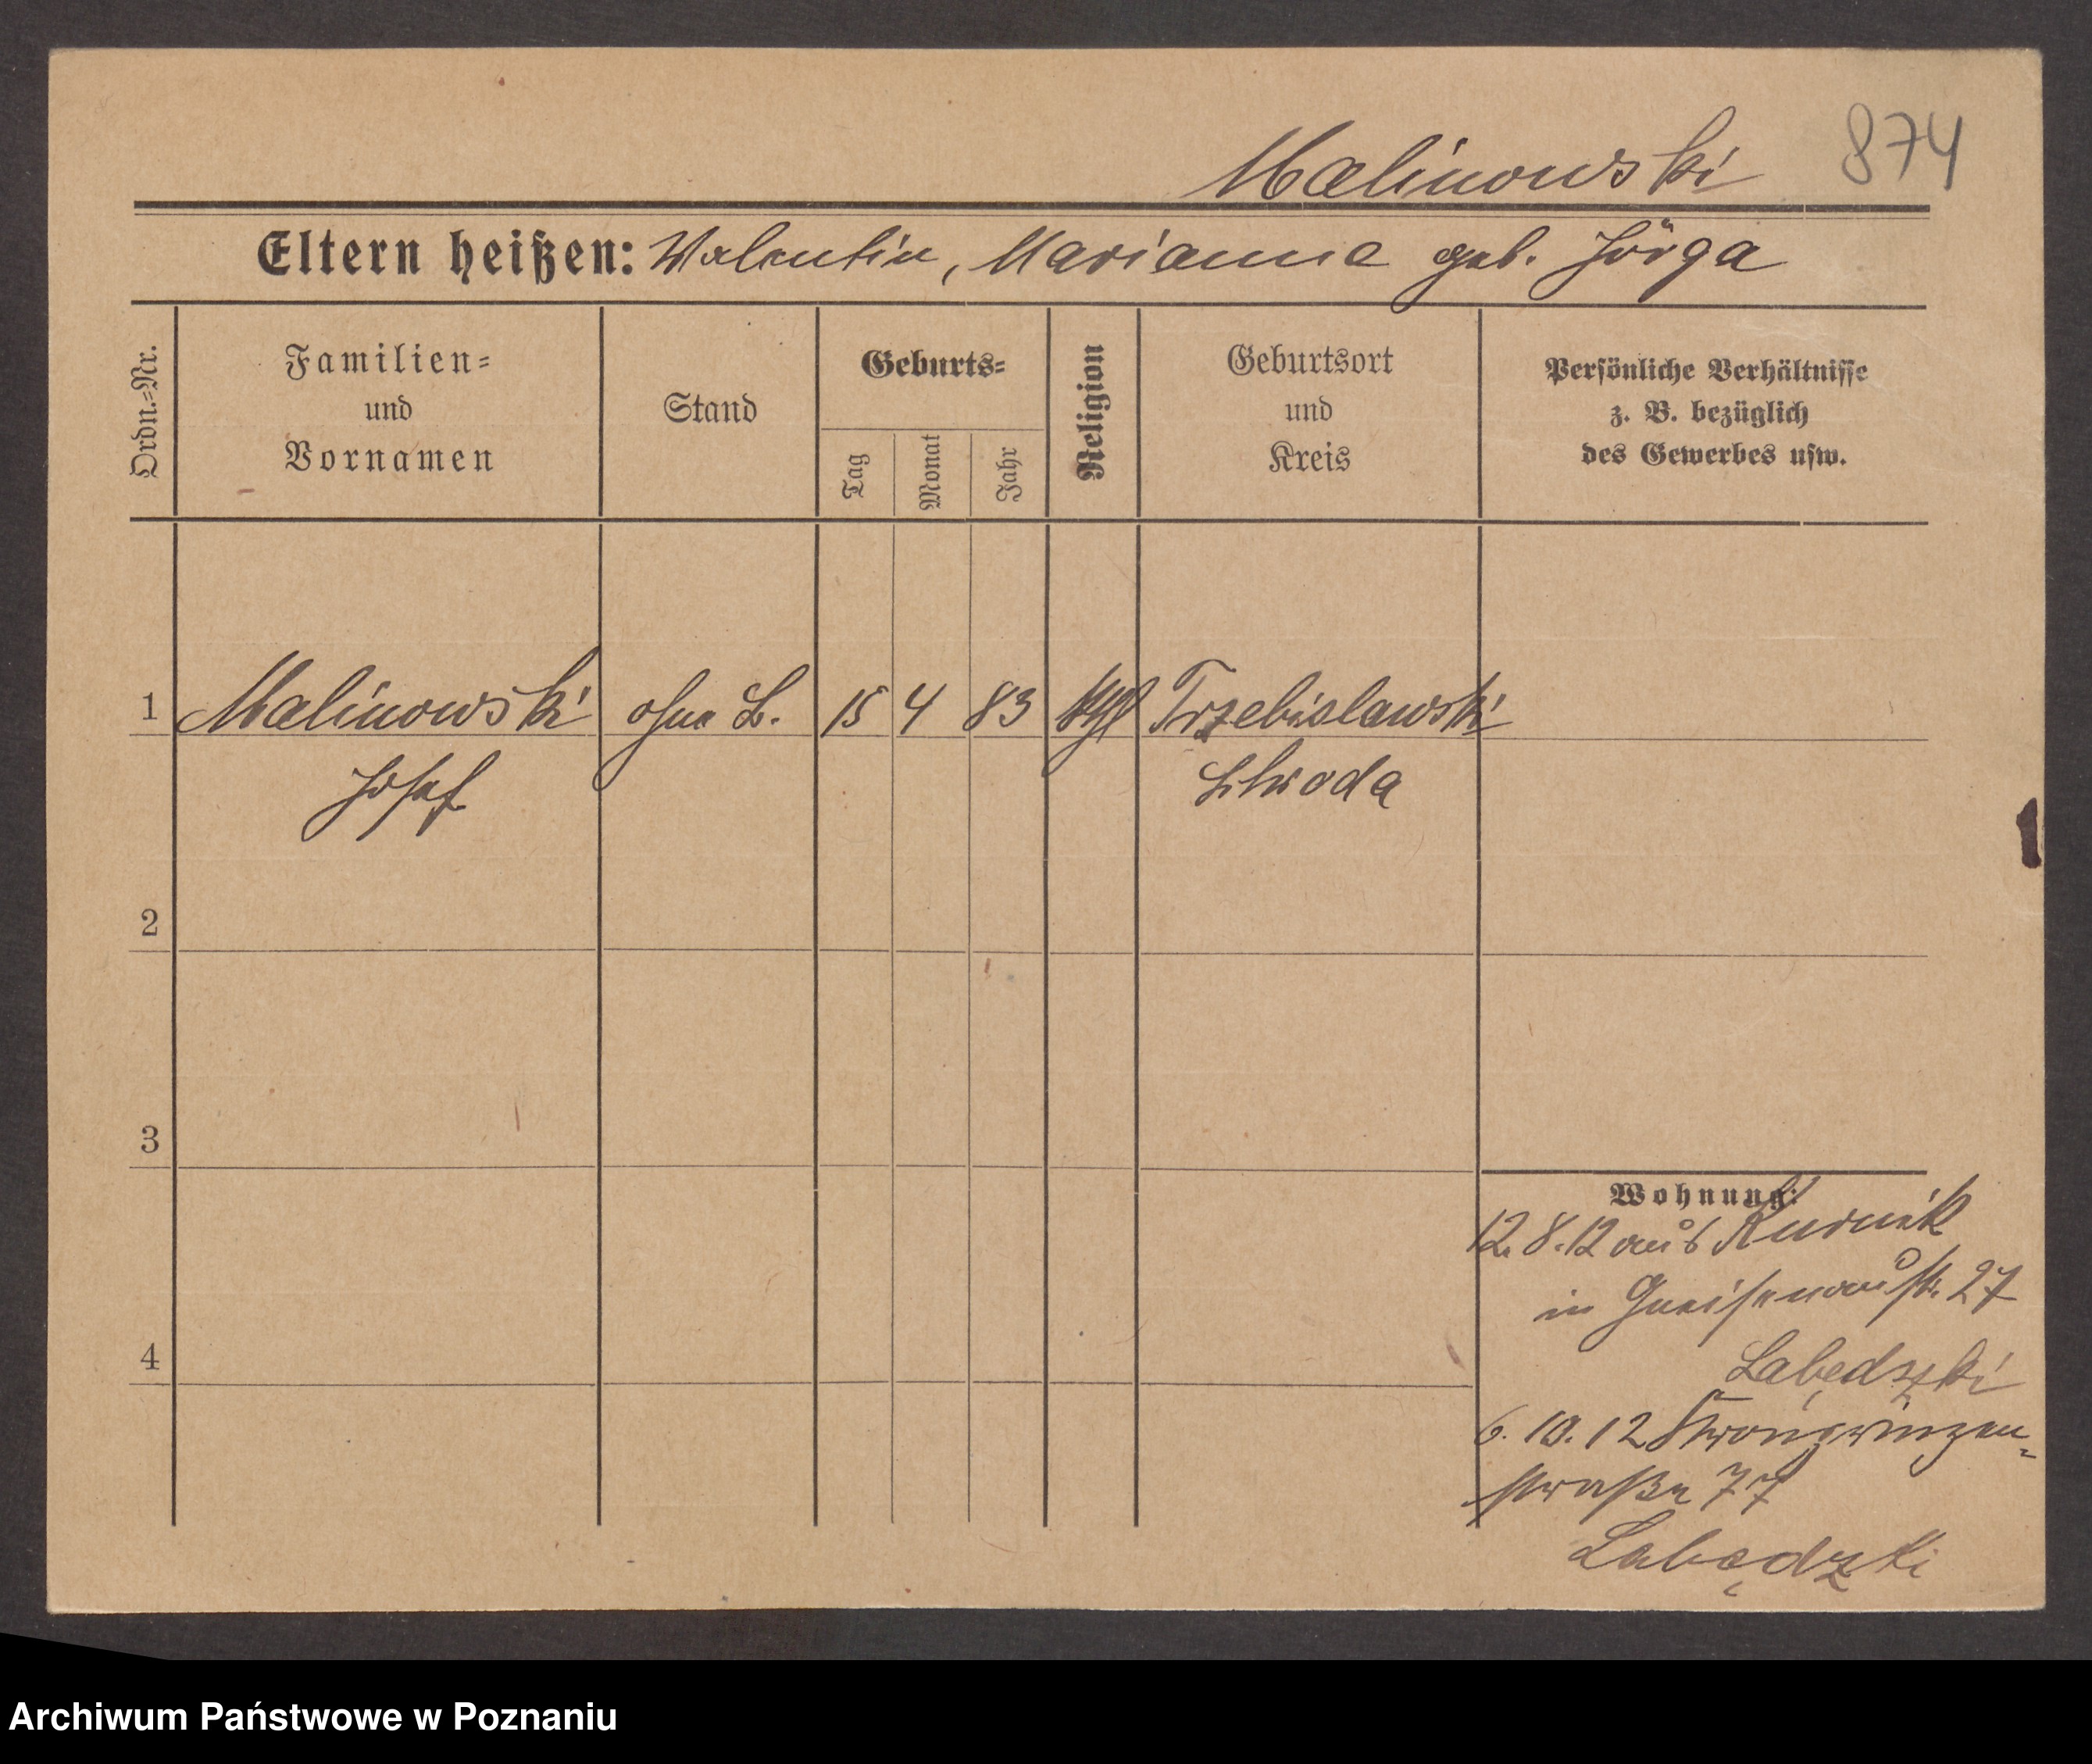 Malinowski 874
Eltern heißen: Valentin, Marianna geb. Jörga
Ordn.-Nr.
Familien-
und
Vornamen
Stand
Geburts-
Tag
Monat
Jahr
Religion
Geburtsort
und
Kreis
Persönliche Verhältnisse
z. B. bezüglich
des Gewerbes usw.
1 Malinowski ohne B. 15 4 83 Trzebislawski
Josef Schroda
2
3
4
Wohnung:
12.8.12 aus Kurnik
in Gneisenaustr. 27
Labędzki
6.10.12 Kronprinzen-
straße 77
Labędzki
Archiwum Państwowe w Poznaniu